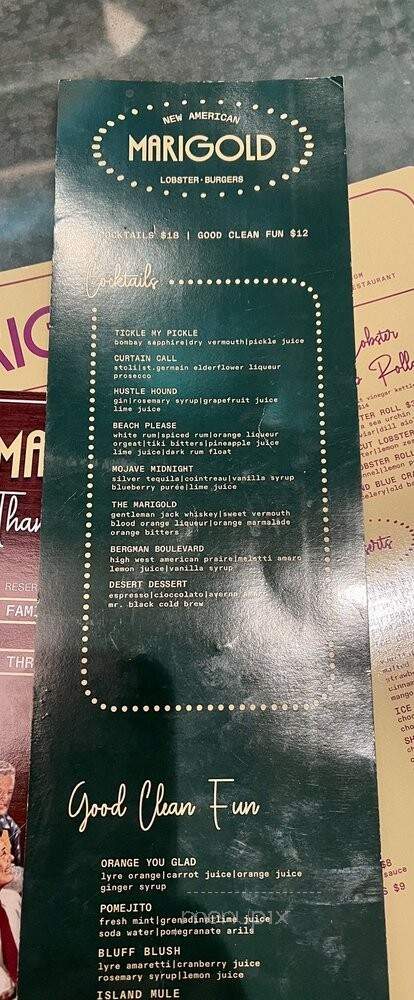 NEW AMERICAN
MARIGOLD
LOBSTER·BURGERS
COCKTAILS $18 | GOOD CLEAN FUN $12
Cocktails
TICKLE MY PICKLE
bombay sapphire|dry vermouth|pickle juice
CURTAIN CALL
stoli|st.germain elderflower liqueur
prosecco
HUSTLE HOUND
gin|rosemary syrup|grapefruit juice
lime juice
BEACH PLEASE
white rum|spiced rum|orange liqueur
orgeat|tiki bitters|pineapple juice
lime juice|dark rum float
MOJAVE MIDNIGHT
silver tequila|cointreau|vanilla syrup
blueberry purée|lime juice
THE MARIGOLD
gentleman jack whiskey|sweet vermouth
blood orange liqueur|orange marmalade
orange bitters
BERGMAN BOULEVARD
high west american praire|meletti amaro
lemon juice|vanilla syrup
DESERT DESSERT
espresso|cioccolato|averna amaro
mr. black cold brew
Good Clean Fun
ORANGE YOU GLAD
lyre orange|carrot juice|orange juice
ginger syrup
POMEJITO
fresh mint|grenadine|lime juice
soda water|pomegranate arils
BLUFF BLUSH
lyre amaretti|cranberry juice
rosemary syrup|lemon juice
ISLAND MULE
MA
Than
RESER
FAMI
THR
ESTAURANT
Lobster
Rolls
ICE
$8
sauce
$9